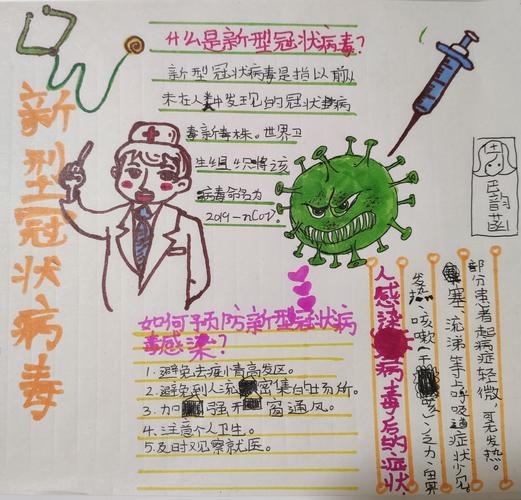 新型冠状病毒
什么是新型冠状病毒?
新型冠状病毒是指以前从
未在人中发现的冠状病
毒新毒株。世界卫
生组织将该
病毒命名为
2019-nCoV。
如何预防新型冠状病
毒感染?
1.避免去疫情高发区。
2.避免到人流密集的场所。
3.加强开窗通风。
4.注意个人卫生。
5.及时观察就医。
人感染病毒后的症状
发热、咳嗽(干咳)、乏力、鼻
塞、流涕等上呼吸道症状少见。
部分患者起病症轻微,可无发热。